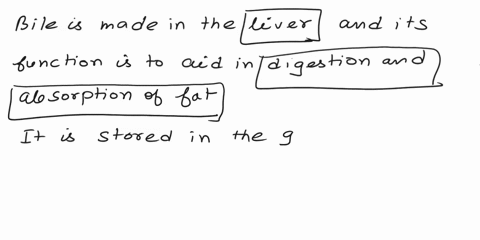 Bile is made in the liver and its
function is to aid in digestion and
absorption of fat
It is stored in the g